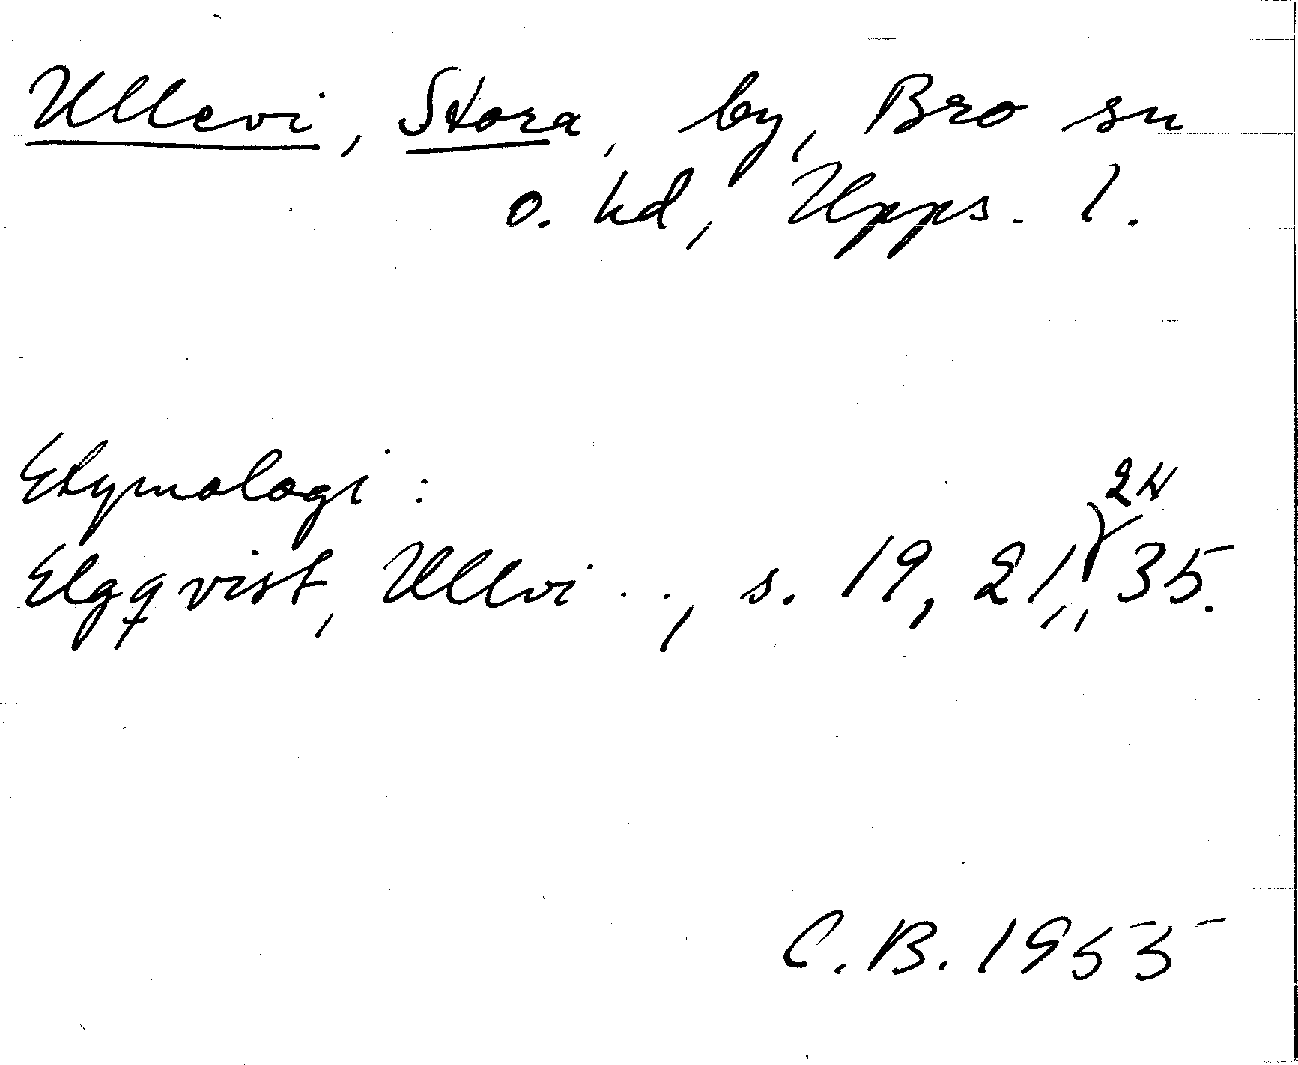 Ullevi, Stora, by, Bro sn
o. hd, Upps. l.
Etymologi:
Elgqvist, Ullvi . . , s. 19, 21, 24, 35.
C.B. 1955